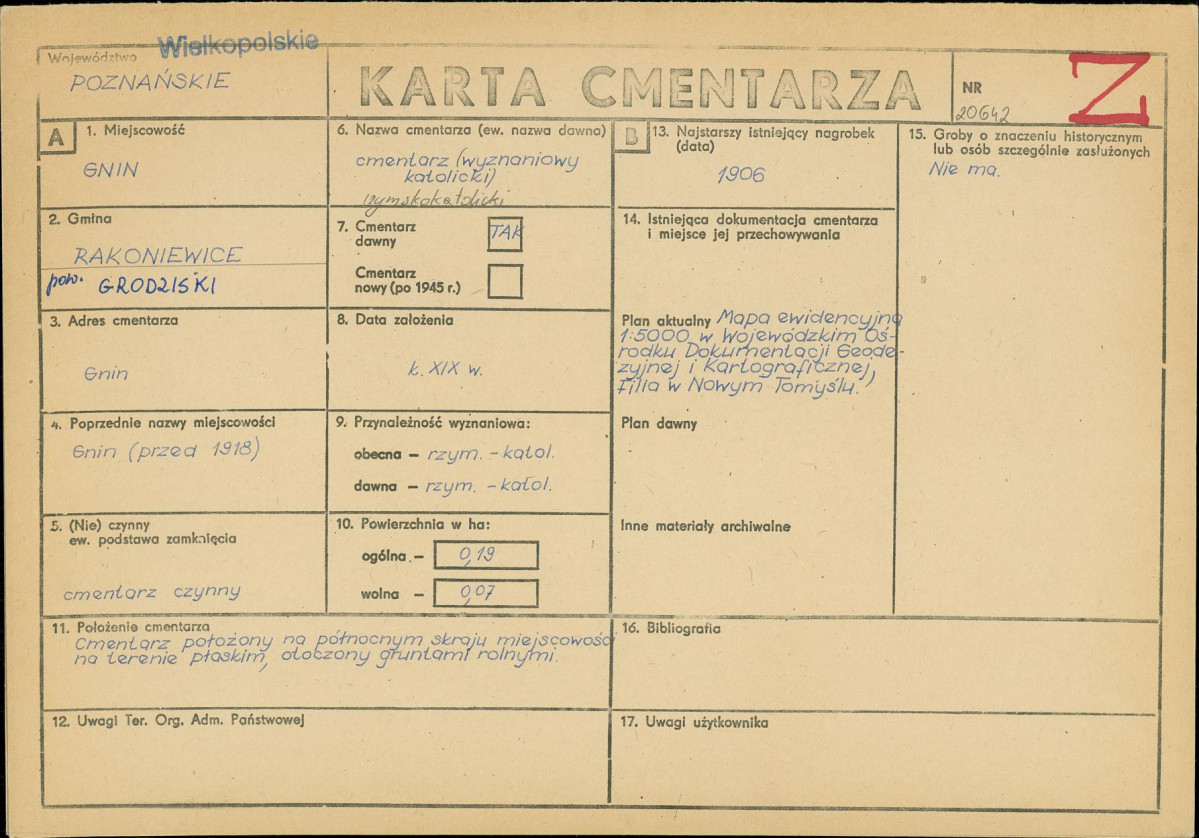 Wielkopolskie
Województwo
POZNAŃSKIE
KARTA CMENTARZA
NR
20642
Z
A
1. Miejscowość
GNIN
2. Gmina
RAKONIEWICE
pow. GRODZISKI
3. Adres cmentarza
Gnin
4. Poprzednie nazwy miejscowości
Gnin (przed 1918)
5. (Nie) czynny
ew. podstawa zamknięcia
cmentarz czynny
6. Nazwa cmentarza (ew. nazwa dawna)
cmentarz (wyznaniowy
katolicki)
rzymskokatolicki
7. Cmentarz
dawny
TAK
Cmentarz
nowy (po 1945 r.)
8. Data założenia
k. XIX w.
9. Przynależność wyznaniowa:
obecna – rzym. - katol.
dawna – rzym. - katol.
10. Powierzchnia w ha:
ogólna – 0,19
wolna – 0,07
11. Położenie cmentarza
Cmentarz położony na północnym skraju miejscowości
na terenie płaskim, otoczony gruntami rolnymi.
12. Uwagi Ter. Org. Adm. Państwowej
B
13. Najstarszy istniejący nagrobek
(data)
1906
14. Istniejąca dokumentacja cmentarza
i miejsce jej przechowywania
Plan aktualny Mapa ewidencyjna
1:5000 w Wojewódzkim Oś-
rodku Dokumentacji Geode-
zyjnej i Kartograficznej,
Filia w Nowym Tomyślu.
Plan dawny
Inne materiały archiwalne
15. Groby o znaczeniu historycznym
lub osób szczególnie zasłużonych
Nie ma.
16. Bibliografia
17. Uwagi użytkownika